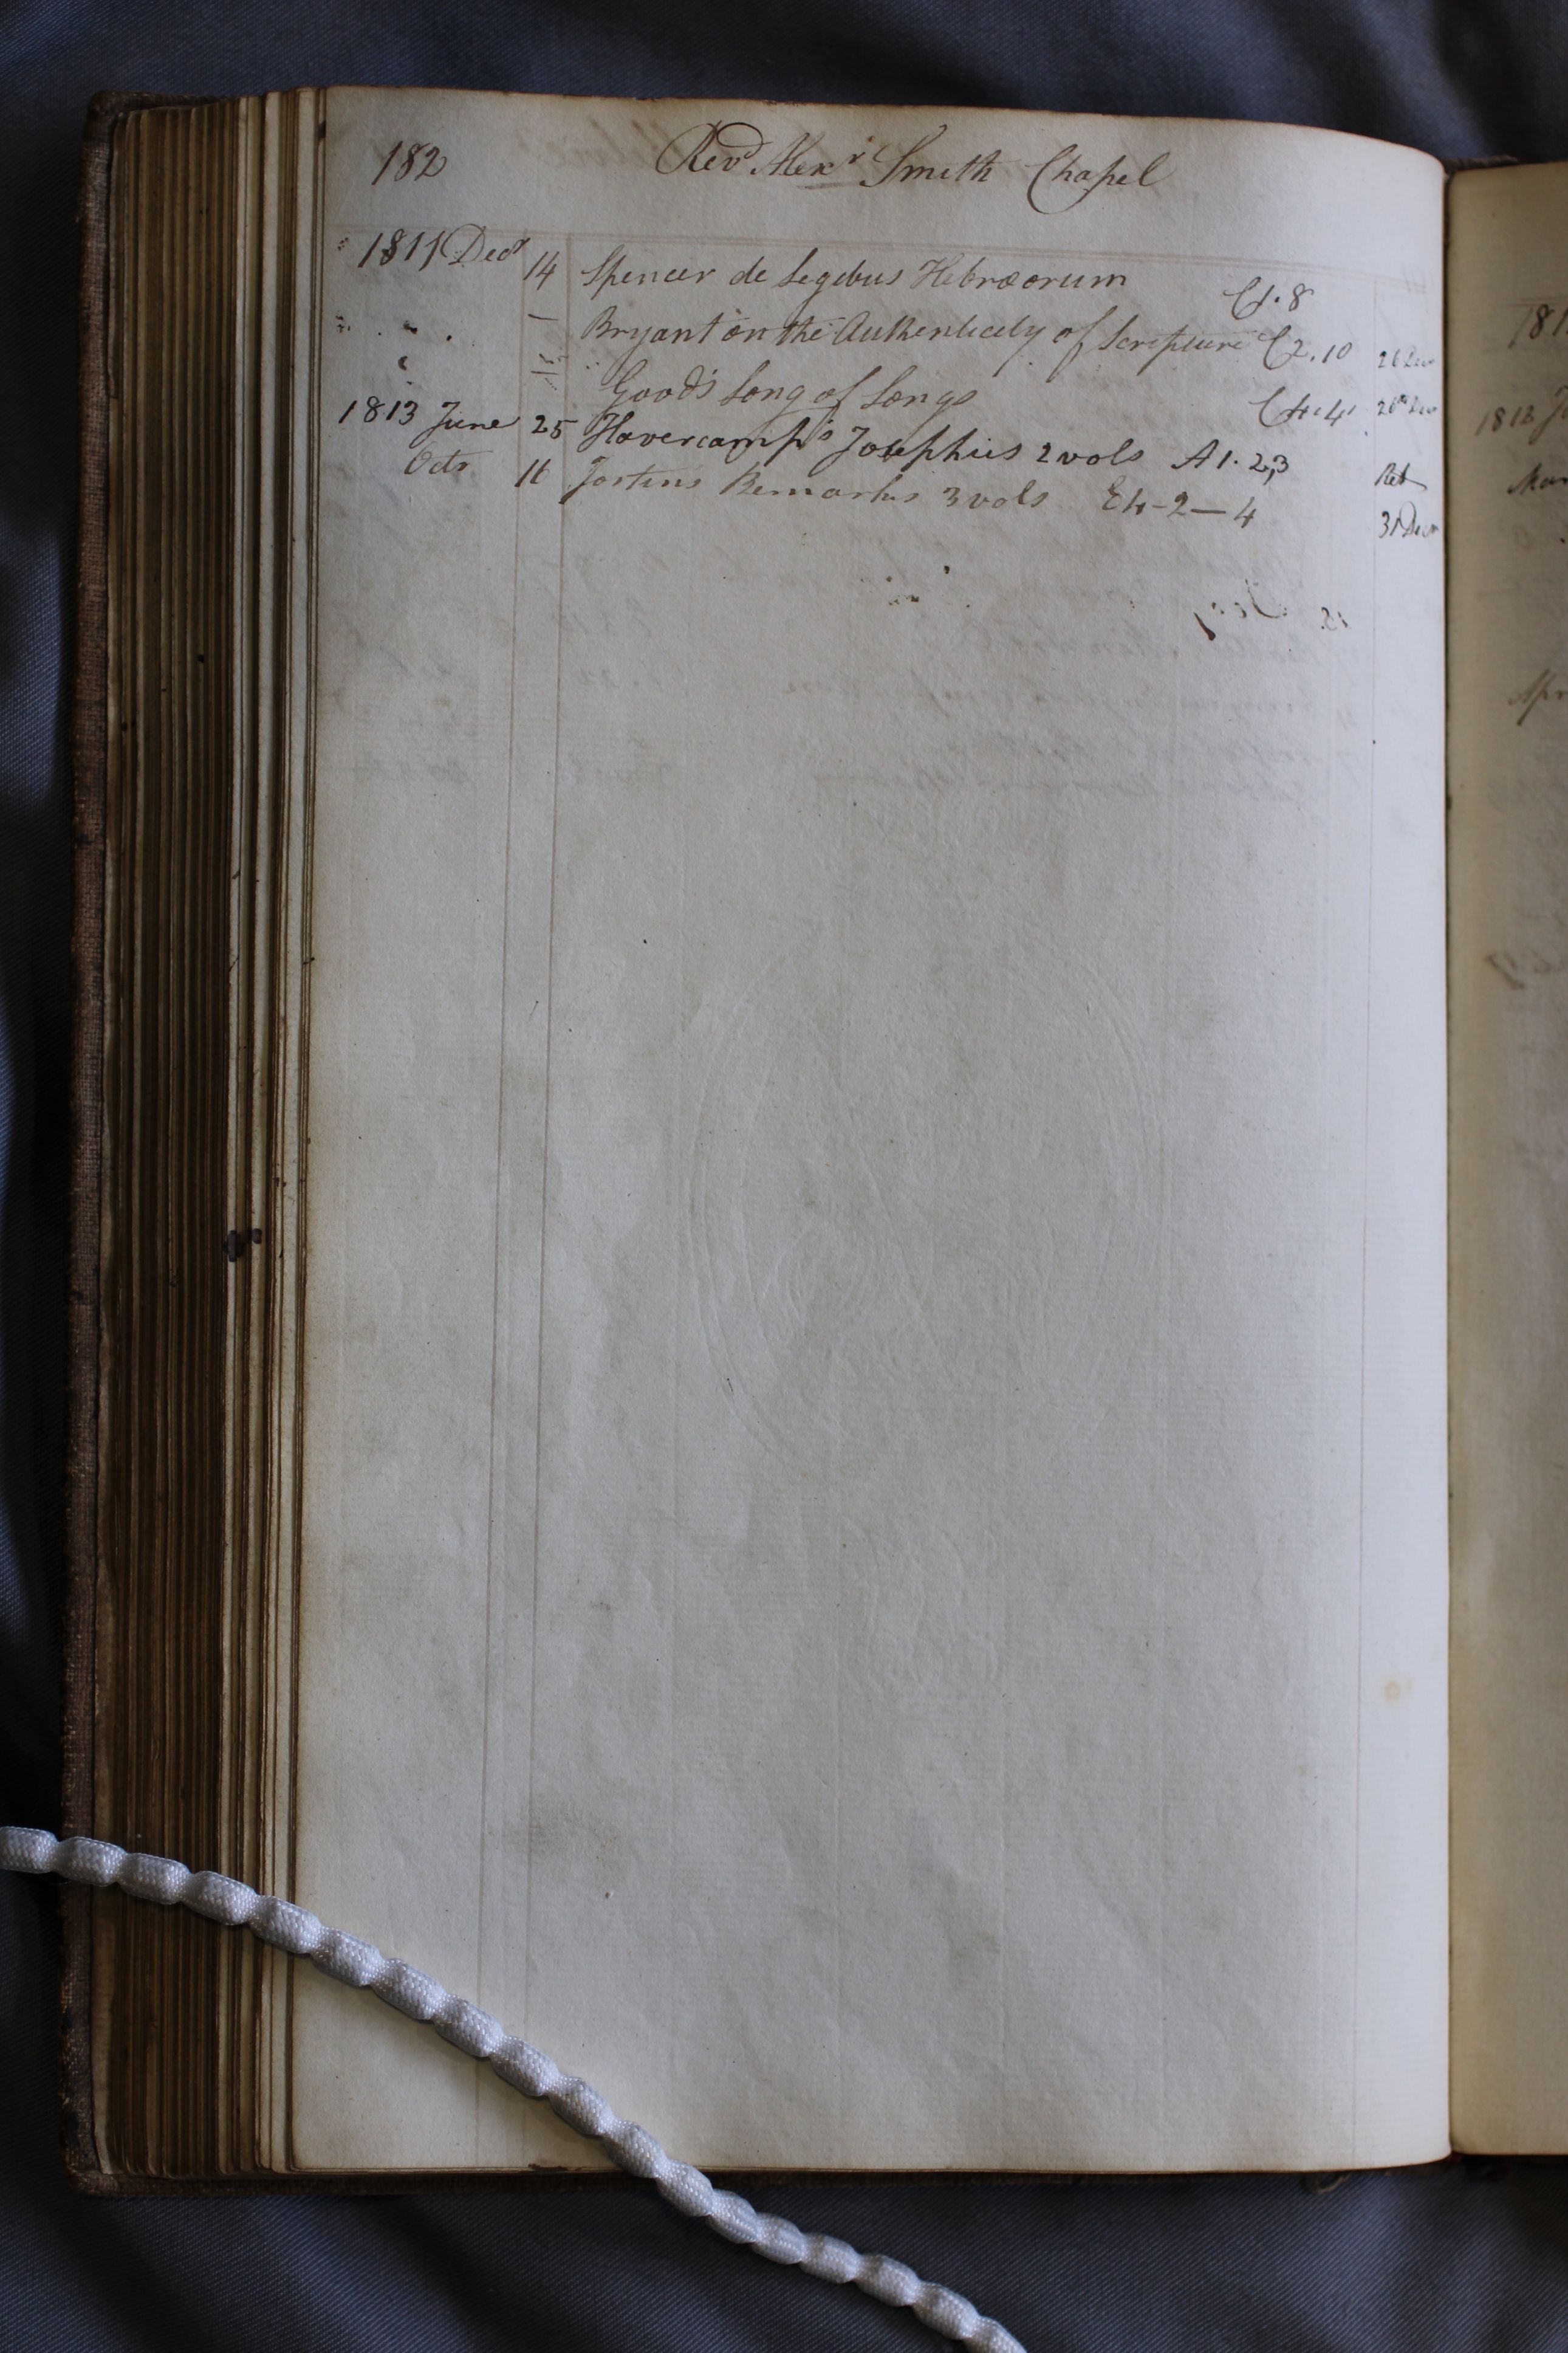 182 Revd Alexr Smith Chapel
1811 Decr 14 Spencer de Legibus Hebræorum C1.8
— Bryant on the Authenticity of Scripture C2.10 26 Decr
Good's Song of Songs C4.4 26th Decr
1813 June 25 Havercamp's Josephus 2 vols A1.2,3 Ret
Octr 16 Jortins Remarks 3 vols E4-2-4 31 Decr
181
1812 J
Mar
Apr